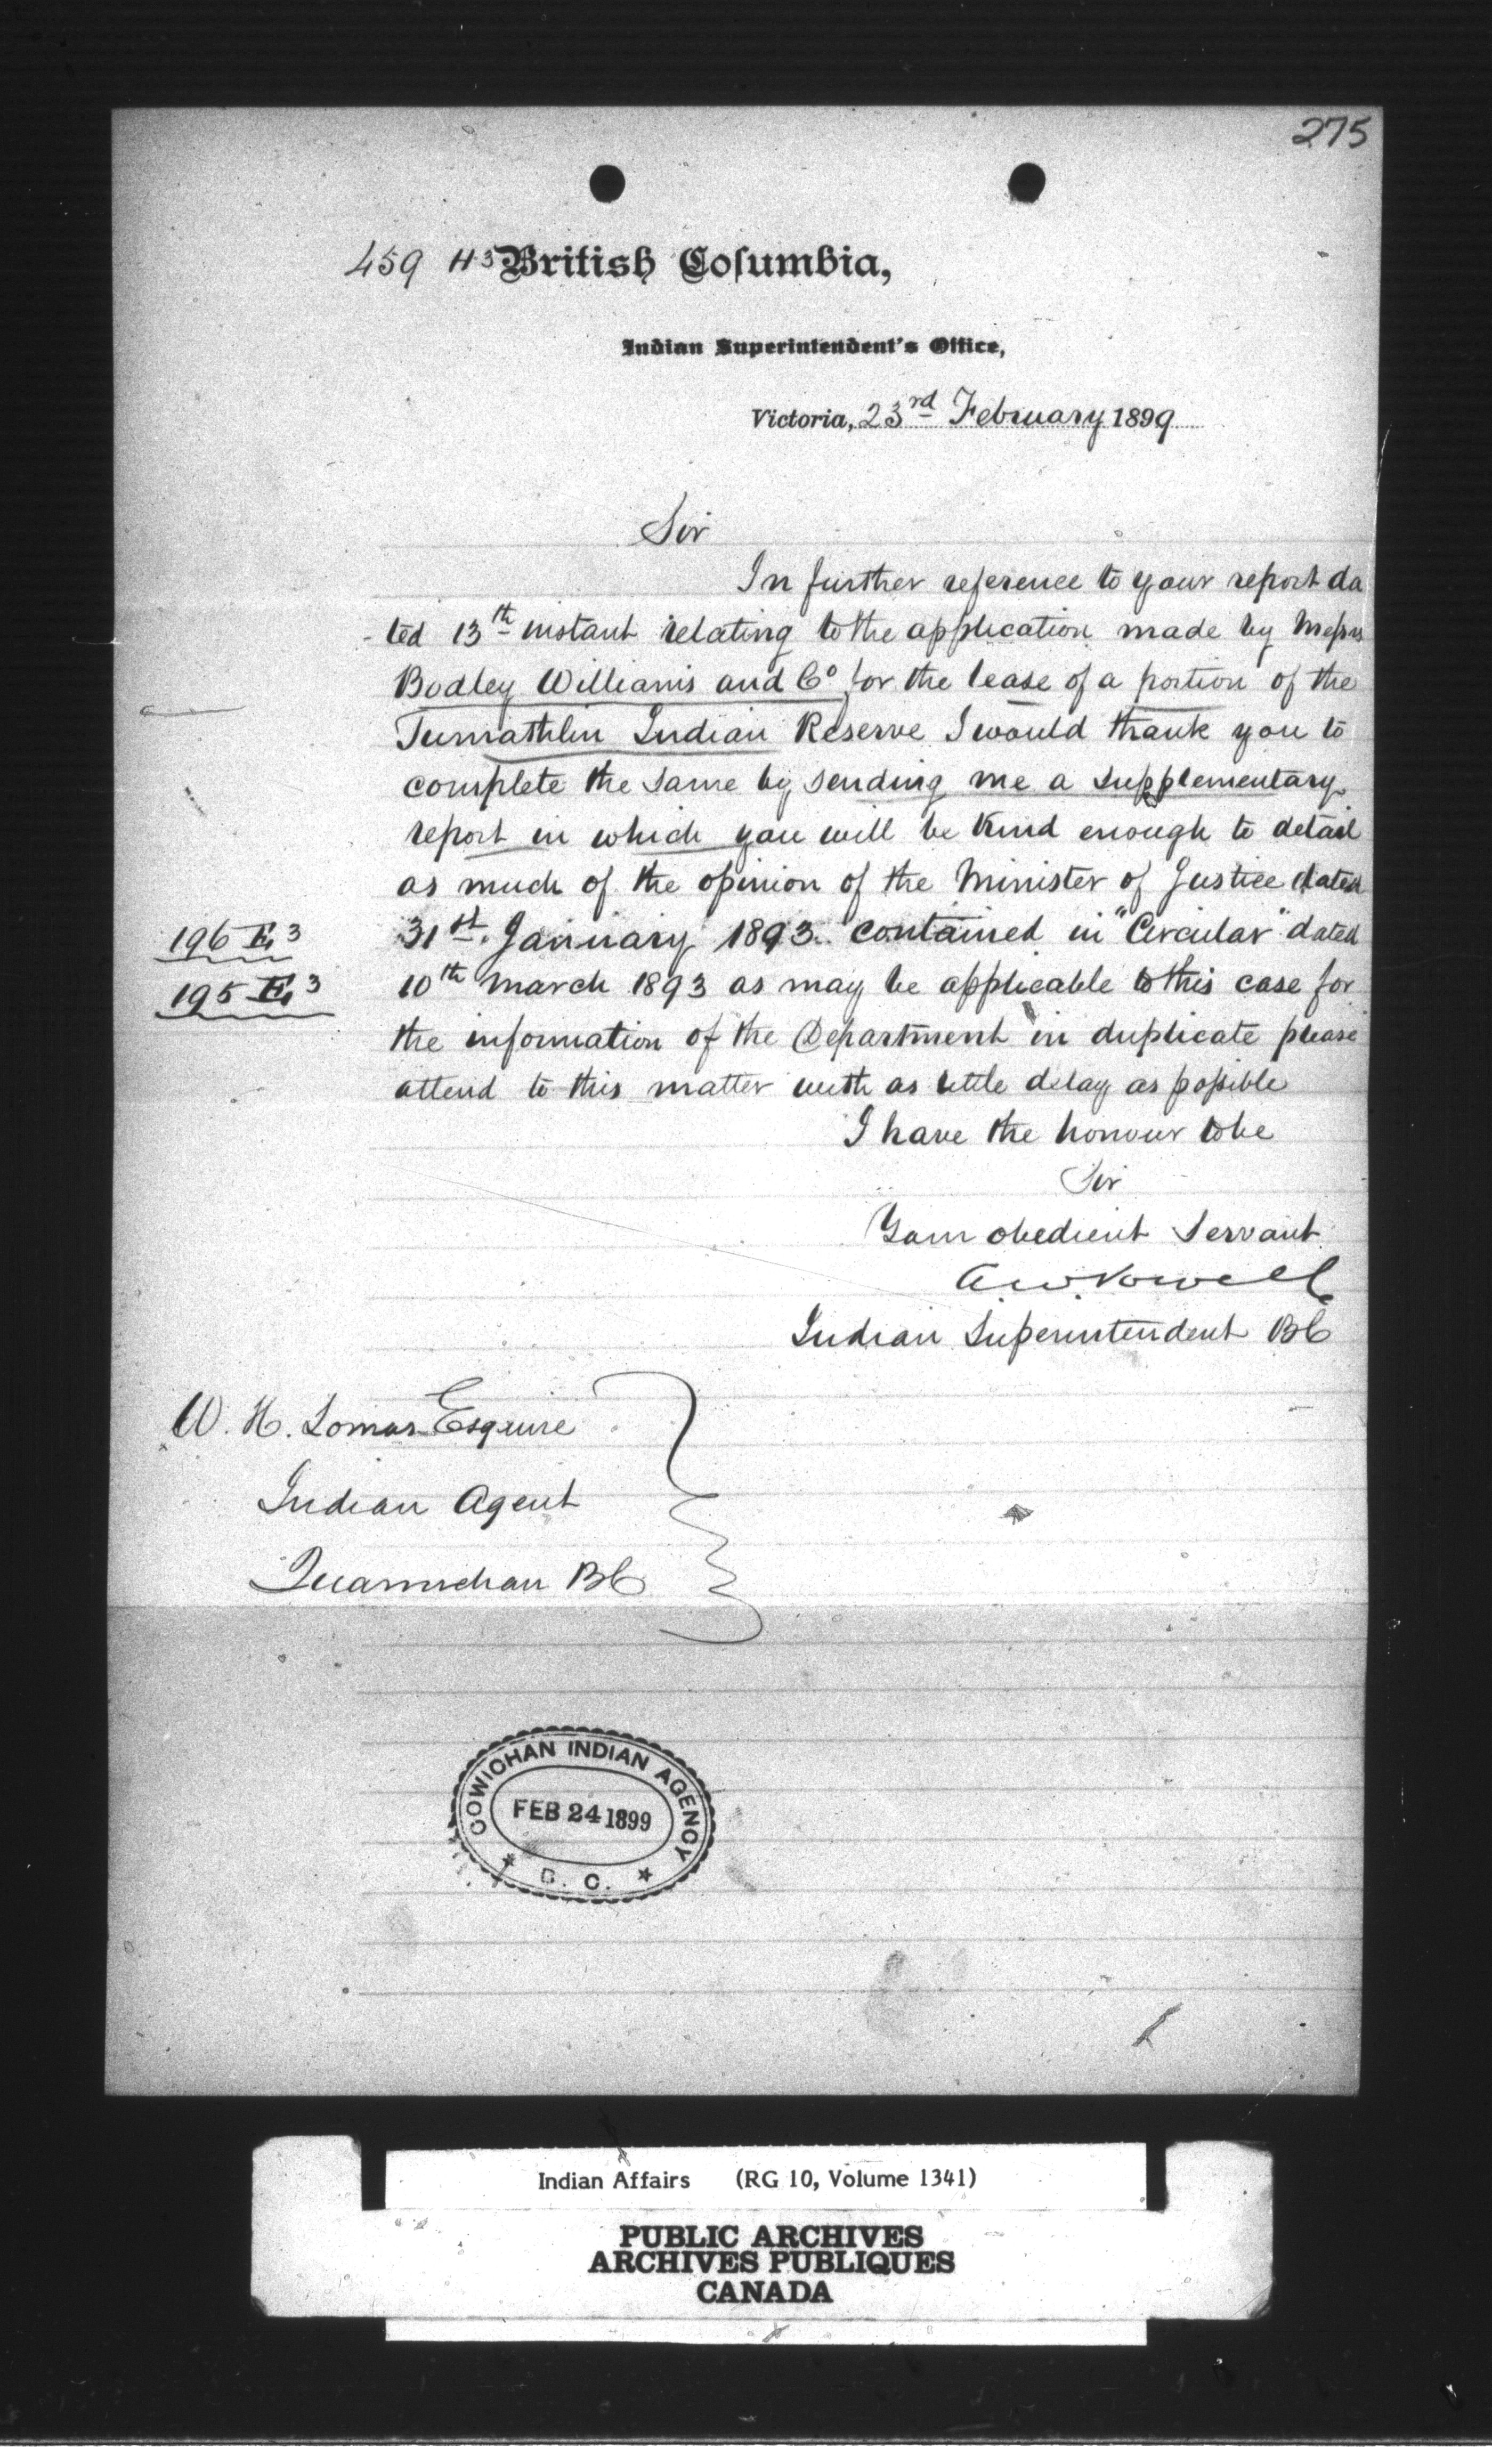 275
459 H3 British Columbia,
Indian Superintendent's Office,
Victoria, 23rd February 1899
Sir
In further reference to your report da
-ted 13th instant relating to the application made by Messrs
Bodley Williams and Co for the lease of a portion of the
Tumathlin Indian Reserve I would thank you to
complete the same by sending me a supplementary
report in which you will be kind enough to detail
as much of the opinion of the Minister of Justice dated
196 E3 31st January 1893 contained in "Circular" dated
195 E3 10th March 1893 as may be applicable to this case for
the information of the Department in duplicate please
attend to this matter with as little delay as possible
I have the honour to be
Sir
Your obedient Servant
A.W. Vowell
Indian Superintendent BC
W. H. Lomas Esquire
Indian Agent
Quamichan BC
COWICHAN INDIAN AGENCY
FEB 24 1899
B. C.
Indian Affairs (RG 10, Volume 1341)
PUBLIC ARCHIVES
ARCHIVES PUBLIQUES
CANADA